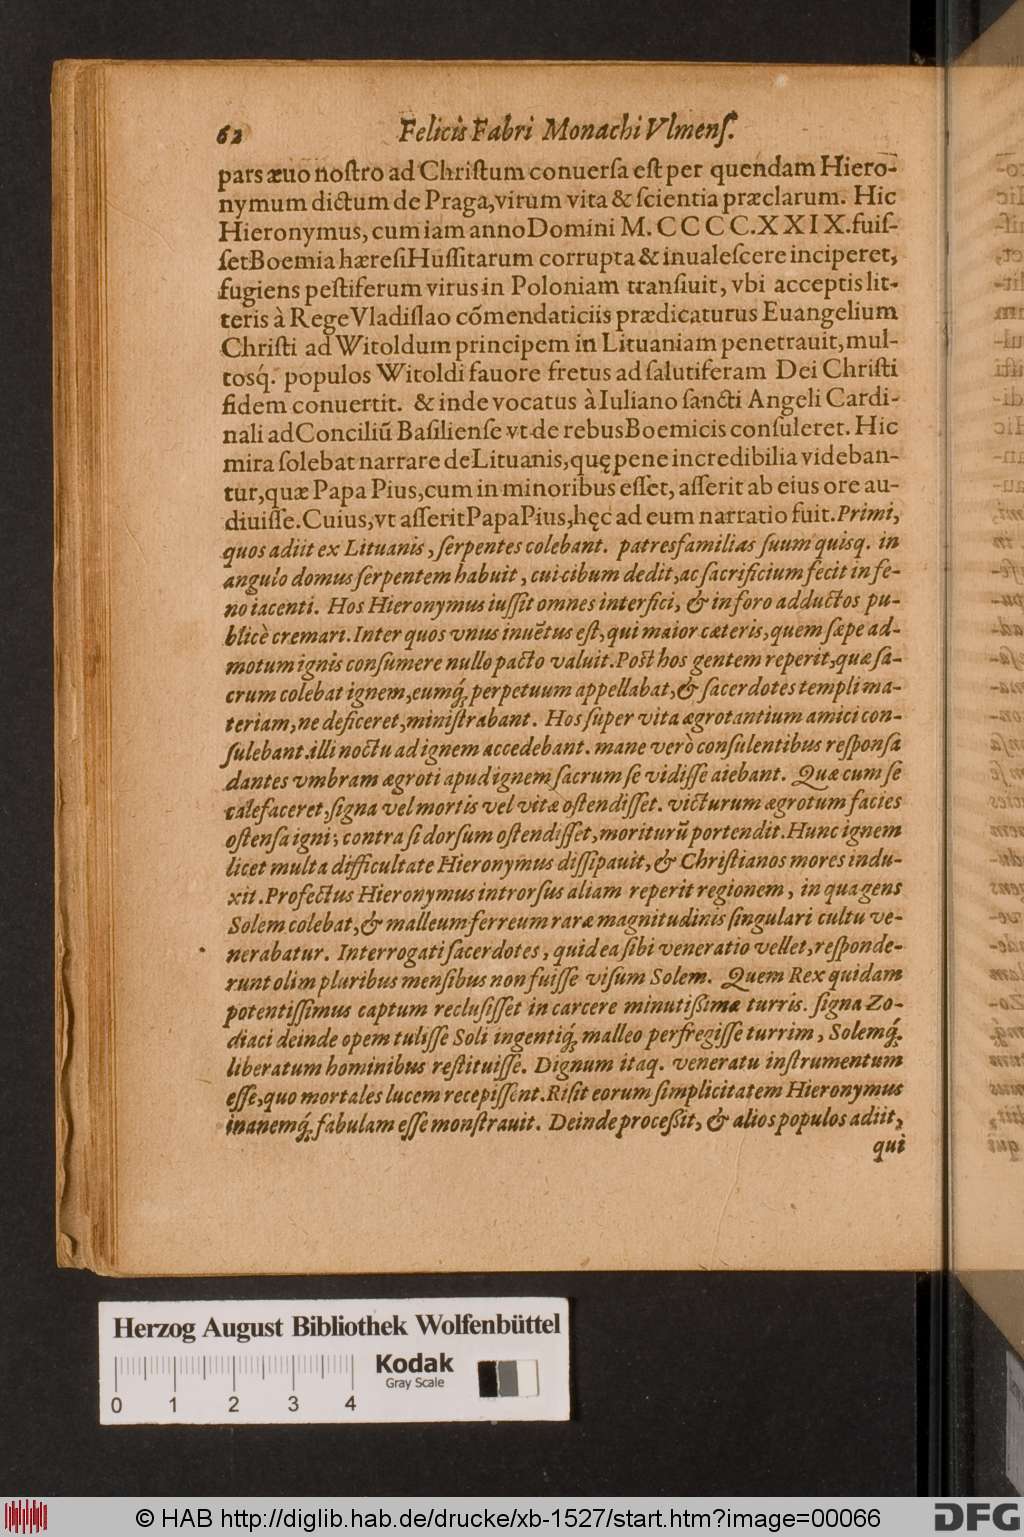 62 Felicis Fabri Monachi Vlmenſ.
pars æuo noſtro ad Chriſtum conuerſa eſt per quendam Hiero-
nymum dictum de Praga, virum vita & ſcientia præclarum. Hic
Hieronymus, cum iam anno Domini M. C C C C. X X I X. fuiſ-
ſet Boemia hæreſi Huſſitarum corrupta & inualeſcere inciperet,
fugiens peſtiferum virus in Poloniam tranſiuit, vbi acceptis lit-
teris à Rege Vladiſlao cõmendaticiis prædicaturus Euangelium
Chriſti ad Witoldum principem in Lituaniam penetrauit, mul-
tosq́. populos Witoldi fauore fretus ad ſalutiferam Dei Chriſti
fidem conuertit. & inde vocatus à Iuliano ſancti Angeli Cardi-
nali ad Conciliũ Baſilienſe vt de rebus Boemicis conſuleret. Hic
mira ſolebat narrare de Lituanis, quę pene incredibilia videban-
tur, quæ Papa Pius, cum in minoribus eſſet, aſſerit ab eius ore au-
diuiſſe. Cuius, vt aſſerit Papa Pius, hęc ad eum narratio fuit. Primi,
quos adiit ex Lituanis, ſerpentes colebant. patresfamilias ſuum quisq. in
angulo domus ſerpentem habuit, cui cibum dedit, ac ſacrificium fecit in fe-
no iacenti. Hos Hieronymus iuſſit omnes interfici, & in foro adductos pu-
blicè cremari. Inter quos vnus inuẽtus eſt, qui maior cæteris, quem ſæpe ad-
motum ignis conſumere nullo pacto valuit. Poſt hos gentem reperit, quæ ſa-
crum colebat ignem, eumq́; perpetuum appellabat, & ſacerdotes templi ma-
teriam, ne deficeret, miniſtrabant. Hos ſuper vita ægrotantium amici con-
ſulebant. illi noctu ad ignem accedebant. mane verò conſulentibus reſponſa
dantes vmbram ægroti apud ignem ſacrum ſe vidiſſe aiebant. Quæ cum ſe
calefaceret, ſigna vel mortis vel vitæ oſtendiſſet. victurum ægrotum facies
oſtenſa igni; contra ſi dorſum oſtendiſſet, moriturũ portendit. Hunc ignem
licet multa difficultate Hieronymus diſſipauit, & Chriſtianos mores indu-
xit. Profectus Hieronymus introrſus aliam reperit regionem, in qua gens
Solem colebat, & malleum ferreum raræ magnitudinis ſingulari cultu ve-
nerabatur. Interrogati ſacerdotes, quid ea ſibi veneratio vellet, reſponde-
runt olim pluribus menſibus non fuiſſe viſum Solem. Quem Rex quidam
potentiſſimus captum recluſiſſet in carcere minutißimæ turris. ſigna Zo-
diaci deinde opem tuliſſe Soli ingentiq́; malleo perfregiſſe turrim, Solemq́;
liberatum hominibus reſtituiſſe. Dignum itaq. veneratu inſtrumentum
eſſe, quo mortales lucem recepiſſent. Riſit eorum ſimplicitatem Hieronymus
inanemq́; fabulam eſſe monſtrauit. Deinde proceßit, & alios populos adiit,
qui
Herzog August Bibliothek Wolfenbüttel
Kodak
Gray Scale
0 1 2 3 4
© HAB http://diglib.hab.de/drucke/xb-1527/start.htm?image=00066
DFG